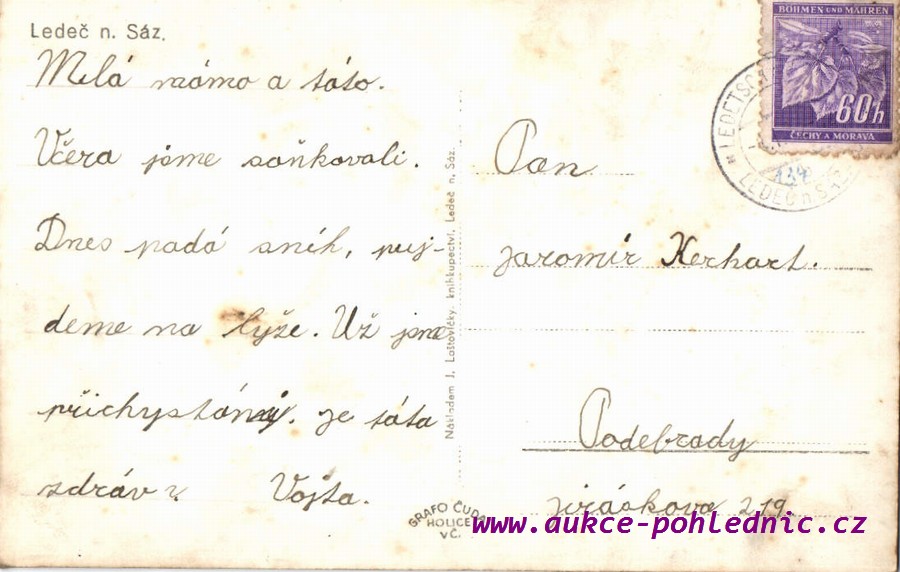 Ledeč n. Sáz.
Milá mámo a táto.
Včera jsme saňkovali.
Dnes padá sníh, puj-
deme na lyže. Už jsme
přichystáni. Je táta
zdráv? Vojta.
Nákladem J. Laštovičky, knihkupectví, Ledeč n. Sáz.
GRAFO ČUDA
HOLICE
V Č.
BÖHMEN UND MÄHREN
60h
ČECHY A MORAVA
LEDETSCH
LEDEČ n. S
Pan
Jaromír Kerhart.
Podebrady
Jiráskova 219.
www.aukce-pohlednic.cz